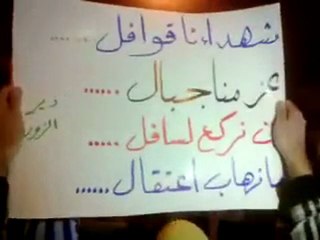 شهداءنا قوافل .....
عزمنا جبال ......
لن نركع لسافل .....
مانهاب اعتقال ......
دير
الزور